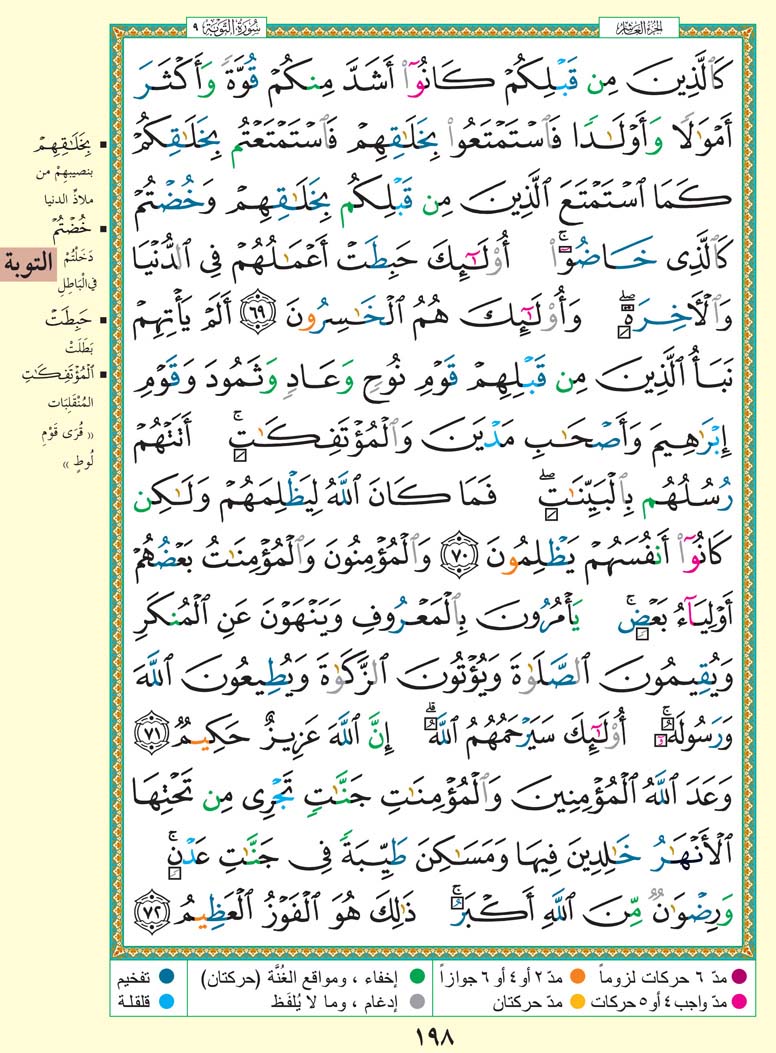 الجزء العاشر
سورة التوبة ٩
كَٱلَّذِينَ مِن قَبْلِكُمْ كَانُوٓا۟ أَشَدَّ مِنكُمْ قُوَّةً وَأَكْثَرَ
أَمْوَٰلًا وَأَوْلَـٰدًا فَٱسْتَمْتَعُوا۟ بِخَلَـٰقِهِمْ فَٱسْتَمْتَعْتُم بِخَلَـٰقِكُمْ
كَمَا ٱسْتَمْتَعَ ٱلَّذِينَ مِن قَبْلِكُم بِخَلَـٰقِهِمْ وَخُضْتُمْ
كَٱلَّذِى خَاضُوٓا۟ ۚ أُو۟لَـٰٓئِكَ حَبِطَتْ أَعْمَـٰلُهُمْ فِى ٱلدُّنْيَا
وَٱلْـَٔاخِرَةِ ۖ وَأُو۟لَـٰٓئِكَ هُمُ ٱلْخَـٰسِرُونَ ﴿٦٩﴾ أَلَمْ يَأْتِهِمْ
نَبَأُ ٱلَّذِينَ مِن قَبْلِهِمْ قَوْمِ نُوحٍ وَعَادٍ وَثَمُودَ وَقَوْمِ
إِبْرَٰهِيمَ وَأَصْحَـٰبِ مَدْيَنَ وَٱلْمُؤْتَفِكَـٰتِ ۚ أَتَتْهُمْ
رُسُلُهُم بِٱلْبَيِّنَـٰتِ ۖ فَمَا كَانَ ٱللَّهُ لِيَظْلِمَهُمْ وَلَـٰكِن
كَانُوٓا۟ أَنفُسَهُمْ يَظْلِمُونَ ﴿٧٠﴾ وَٱلْمُؤْمِنُونَ وَٱلْمُؤْمِنَـٰتُ بَعْضُهُمْ
أَوْلِيَآءُ بَعْضٍ ۚ يَأْمُرُونَ بِٱلْمَعْرُوفِ وَيَنْهَوْنَ عَنِ ٱلْمُنكَرِ
وَيُقِيمُونَ ٱلصَّلَوٰةَ وَيُؤْتُونَ ٱلزَّكَوٰةَ وَيُطِيعُونَ ٱللَّهَ
وَرَسُولَهُۥٓ ۚ أُو۟لَـٰٓئِكَ سَيَرْحَمُهُمُ ٱللَّهُ ۗ إِنَّ ٱللَّهَ عَزِيزٌ حَكِيمٌ ﴿٧١﴾
وَعَدَ ٱللَّهُ ٱلْمُؤْمِنِينَ وَٱلْمُؤْمِنَـٰتِ جَنَّـٰتٍ تَجْرِى مِن تَحْتِهَا
ٱلْأَنْهَـٰرُ خَـٰلِدِينَ فِيهَا وَمَسَـٰكِنَ طَيِّبَةً فِى جَنَّـٰتِ عَدْنٍ ۚ
وَرِضْوَٰنٌ مِّنَ ٱللَّهِ أَكْبَرُ ۚ ذَٰلِكَ هُوَ ٱلْفَوْزُ ٱلْعَظِيمُ ﴿٧٢﴾
بِخَلَـٰقِهِمْ
بنصيبهم من
ملاذّ الدنيا
خُضْتُمْ
دَخَلْتُمْ
في الْبَاطِلِ
حَبِطَتْ
بَطَلَتْ
ٱلْمُؤْتَفِكَـٰتِ
المُنْقَلِبَات
« قُرَى قَوْمِ
لُوطٍ »
التوبة
مدّ ٦ حركات لزوماً
مدّ ٢ أو ٤ أو ٦ جوازاً
إخفاء ، ومواقع الغُنَّة (حركتان)
تفخيم
مدّ واجب ٤ أو ٥ حركات
مدّ حركتان
إدغام ، وما لا يُلفَظ
قلقلة
١٩٨